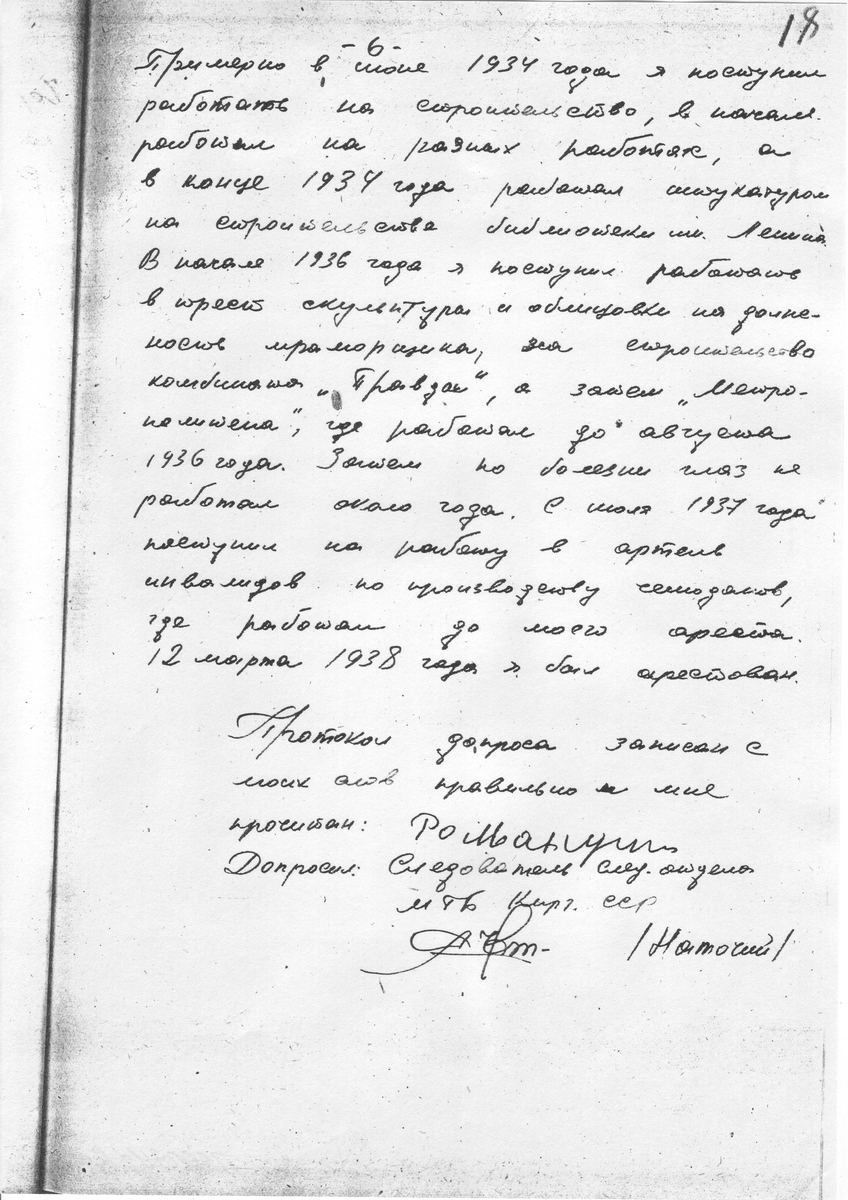 18
- 6 -
Примерно в июне 1934 года я поступил
работать на строительство, в начале
работал на разных работах, а
в конце 1934 года работал штукатуром
на строительстве библиотеки им. Ленина.
В начале 1936 года я поступил работать
в трест скульптуры и облицовки на долж-
ность мраморщика, на строительство
комбината „Правда“, а затем „Метро-
политена“, где работал до августа
1936 года. Затем по болезни глаз не
работал около года. С июля 1937 года
поступил на работу в артель
инвалидов по производству чемоданов,
где работал до моего ареста.
12 марта 1938 года я был арестован.
Протокол допроса записан с
моих слов правильно и мне
прочитан:
Допросил: Следователь след. отдела
МГБ Кирг. ССР